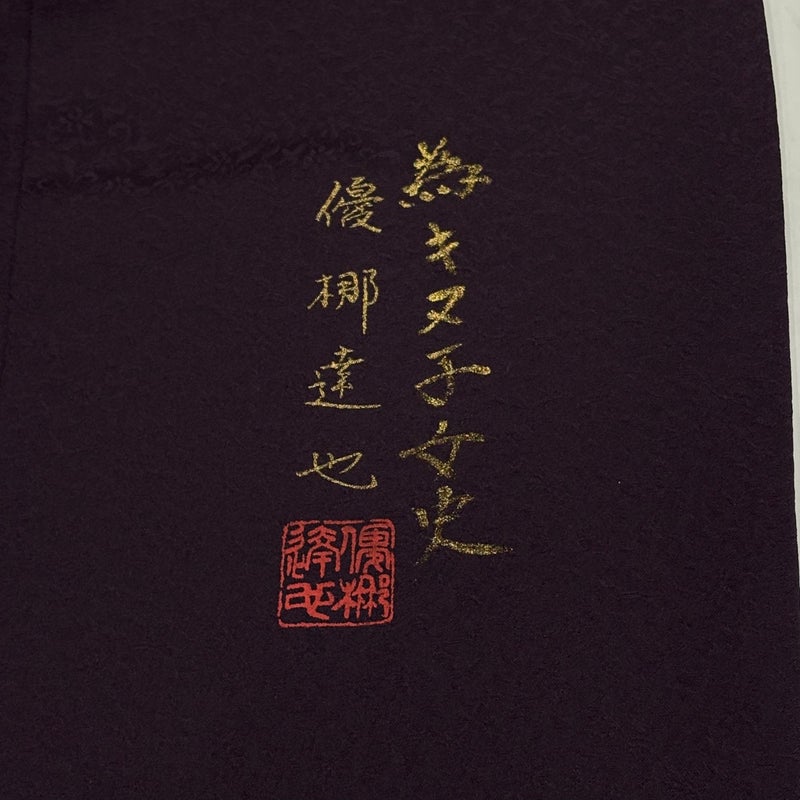 為キヌ子女史
優梛達也
優梛達也